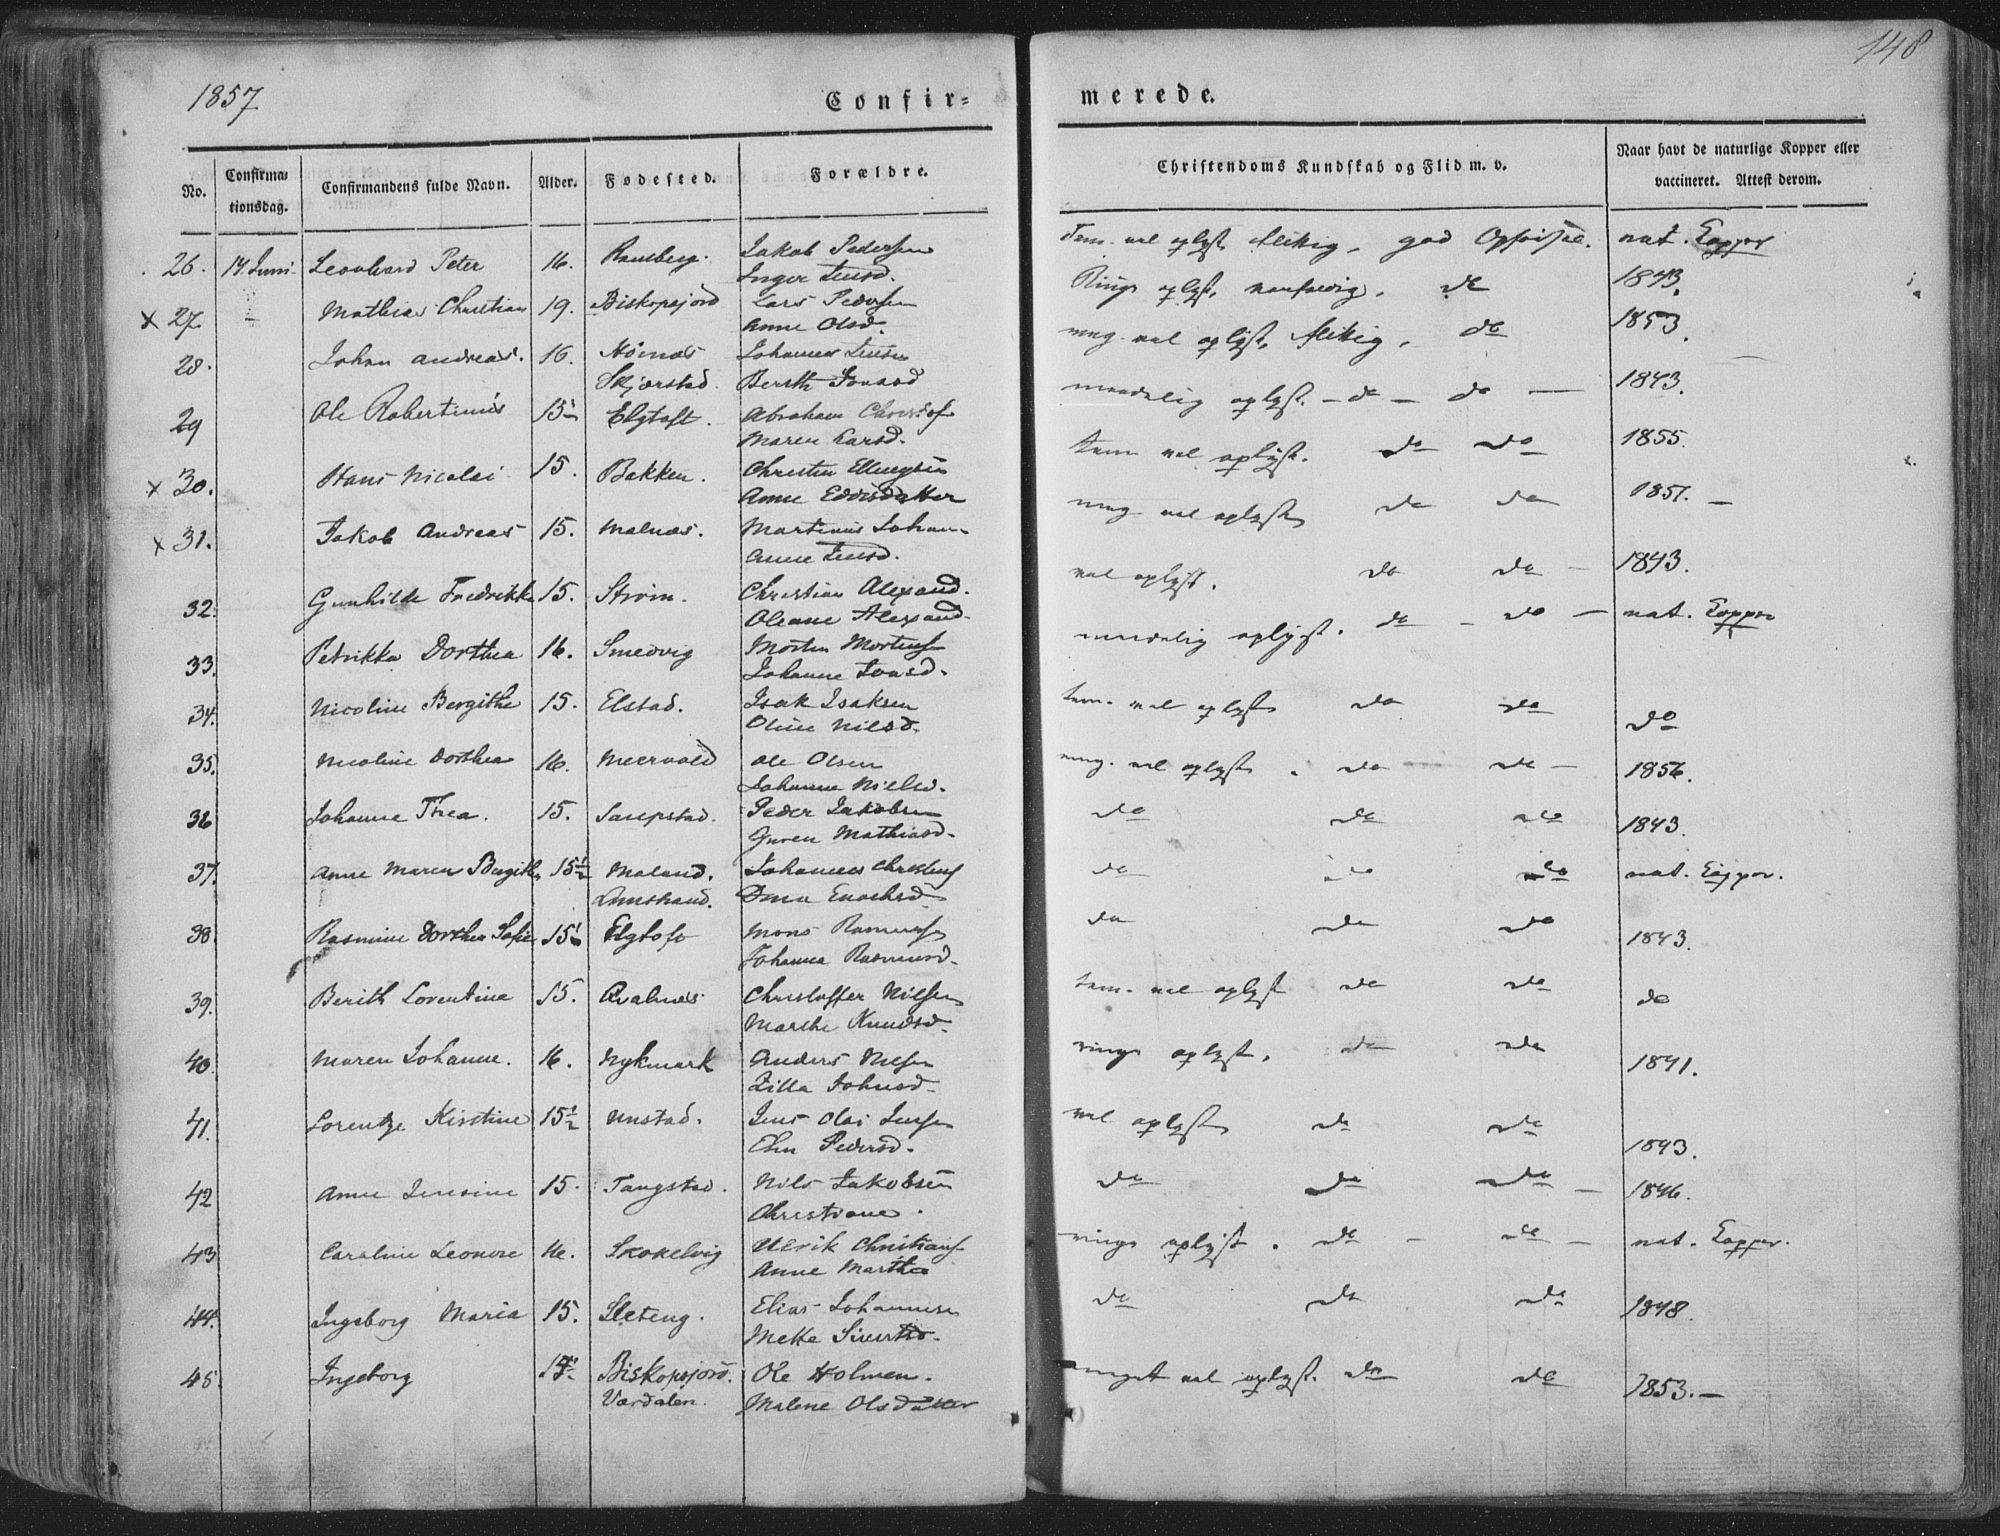 148
1857
Confir-
merede.
No.
Confirma-
tionsdag.
Confirmandens fulde Navn.
Alder.
Fødested.
Forældre.
Christendoms Kundskab og Flid m. v.
Naar havt de naturlige Kopper eller
vaccineret. Attest derom.
26. 14 Juni Leonhard Peter 16. Ramberg. Jakob Pedersen
Inger Jensd.
Tem. vel oplyst flittig, god Opførsel. nat. Kopper
x 27. – Mathias Christian 19. Biskopsjord Lars Pedersen
Anne Olsd.
Ringe oplyst, do 1843.
28. Johan Andreas. 16. Johannes Jensen
Skjerstad. Berith Jonasd
meg. vel oplyst, flittig, do 1853.
29 Ole Robertinus 15 Elgtoft. Abraham
Maren Larsd.
maadelig oplyst. – do – do – 1843.
x 30. Hans Nicolai 15. Bakken. Christen Ellingsen
Anne Eddisdatter
tem vel oplyst. do do 1855.
x 31. Jakob Andreas 15. Malnæs. Martinus Johan-
Anne Jensd.
meg vel oplyst do do 1851. –
32. Gunhilde Fredrikke 15. Strøm. Christian Alexand.
Oleane Alexand.
vel oplyst. do do – 1843.
33. Petrikke Dorthea 16. Smedvig Morten Mortens
Johanne Jonsd.
maadelig oplyst. do – do – nat. Kopper
34. Nicoline Bergithe 15. Elstad. Isak Isaksen
Oline Nilsd.
tem. vel oplyst do do do
35. Nicoline Dorthea 16. Meervold Ole Olsen
Johanne Nielsd.
meg. vel oplyst. do do – 1856.
36 Johanne Thea. 15. Peder Jakobsen
Guren Mathiasd.
do do do 1843.
37. Anne Maren Bergithe 15½ Maland. Johannes Christens
Lunstrand.
do do do nat. Kopper.
38 Rasmine Dorthea Sofie 15½ Elgtoft Mons Rasmussen
Johanna Rasmusd.
do do do 1843.
39. Berith Lorentine 15. Qvalnes Christoffer Nilsen
Marthe Knudsd.
tem. vel oplyst do do do
40. Maren Johanne. 16. Nykmark Anders Nilsen
Zilla Johnsd.
ringe oplyst. do do 1841.
41. Lorentze Kirstine 15½ Unstad. Jens Olai Jensen
Elen Pedersd.
vel oplyst do do 1843.
42 Anne Jensine 15. Tangstad. Nils Jakobsen
Christiane.
do do do – 1846.
43 Caroline Leonore 16. Skokelvig Ulrik Christians
Anne Martha
ringe oplyst. do – do – nat. Kopper.
44. Ingeborg Maria 15. Sleteng. Elias Johannesen
Mette Sivertsd.
do do do 1848.
45. Ingeborg Biskopsjord. Ole Holmen.
Værdalen. Malene Olsdatter
meget vel oplyst. do do 1853. –